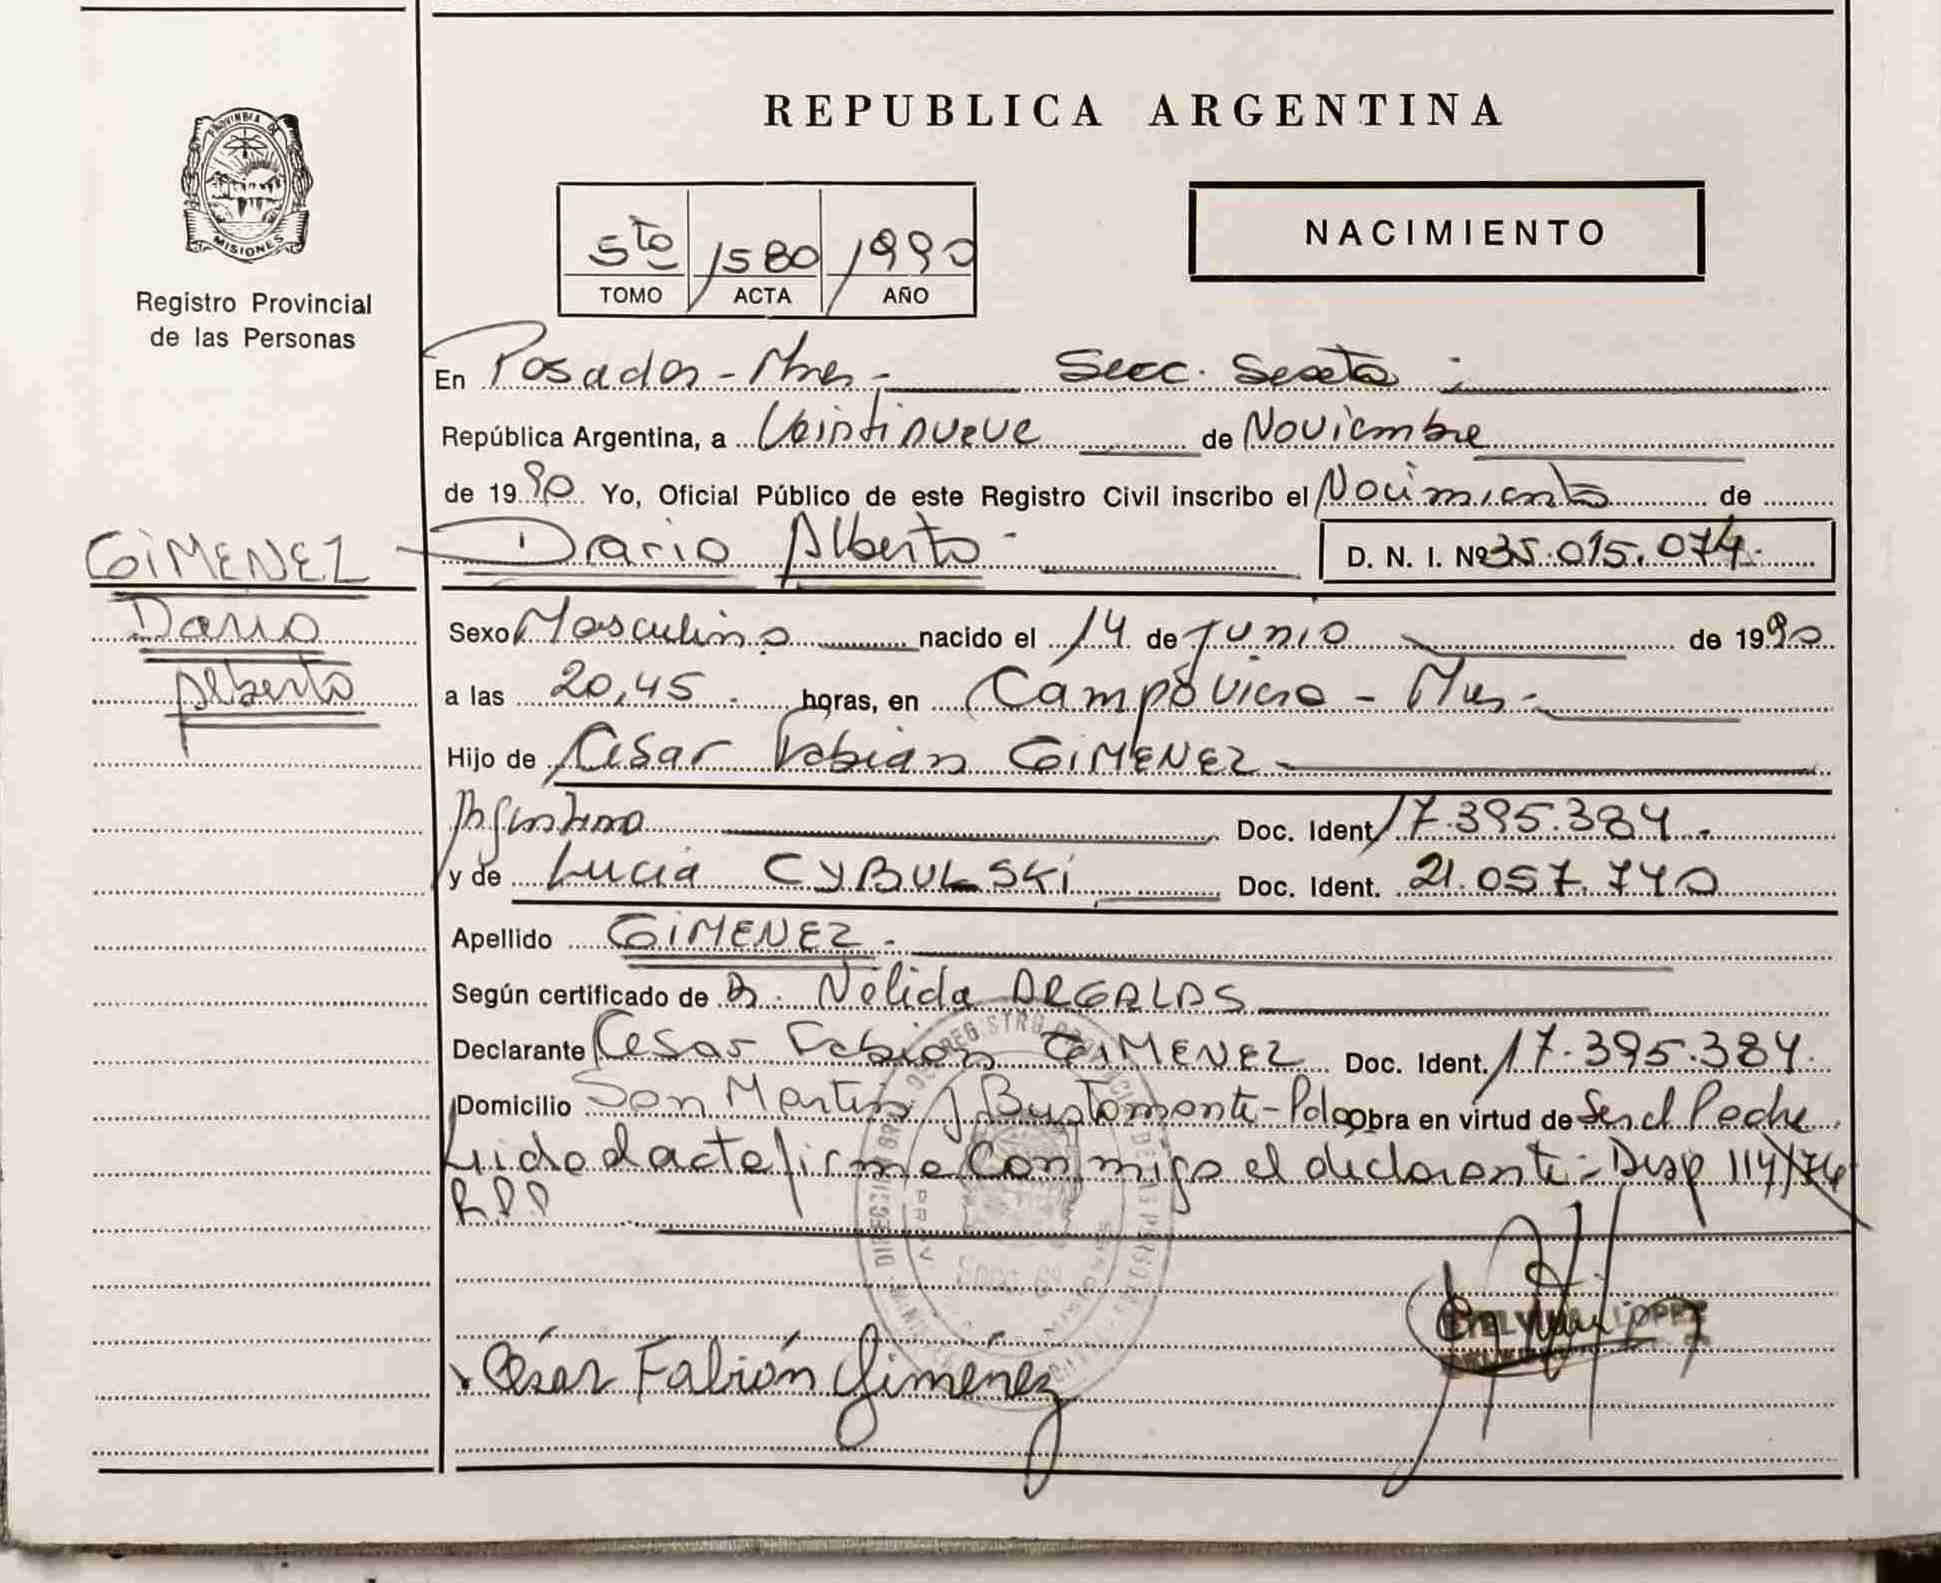 REPUBLICA ARGENTINA
PROVINCIA DE
MISIONES
Registro Provincial
de las Personas
5to 1580 1990
TOMO ACTA AÑO
NACIMIENTO
En Posadas - Mnes - Secc. Sexta
República Argentina, a Veintinueve de Noviembre
de 1990 Yo, Oficial Público de este Registro Civil inscribo el Nacimiento de
GIMENEZ
Dario
Alberto
Dario Alberto D. N. I. Nº 35.015.074
Sexo Masculino nacido el 14 de Junio de 1990
a las 20,45 horas, en Campo Viera - Mnes -
Hijo de Cesar Fabian GIMENEZ
Argentino Doc. Ident 17.395.384
y de Lucia CYBULSKI Doc. Ident. 21.057.740
Apellido GIMENEZ
Según certificado de Nélida ARGALAS
Declarante Cesar Fabian GIMENEZ Doc. Ident. 17.395.384
Domicilio San Martin y Bustamante - Obra en virtud de Ser el Padre
Leida el acta firma conmigo el declarante - Disp 114/74
RPP
César Fabián Giménez
LOPEZ